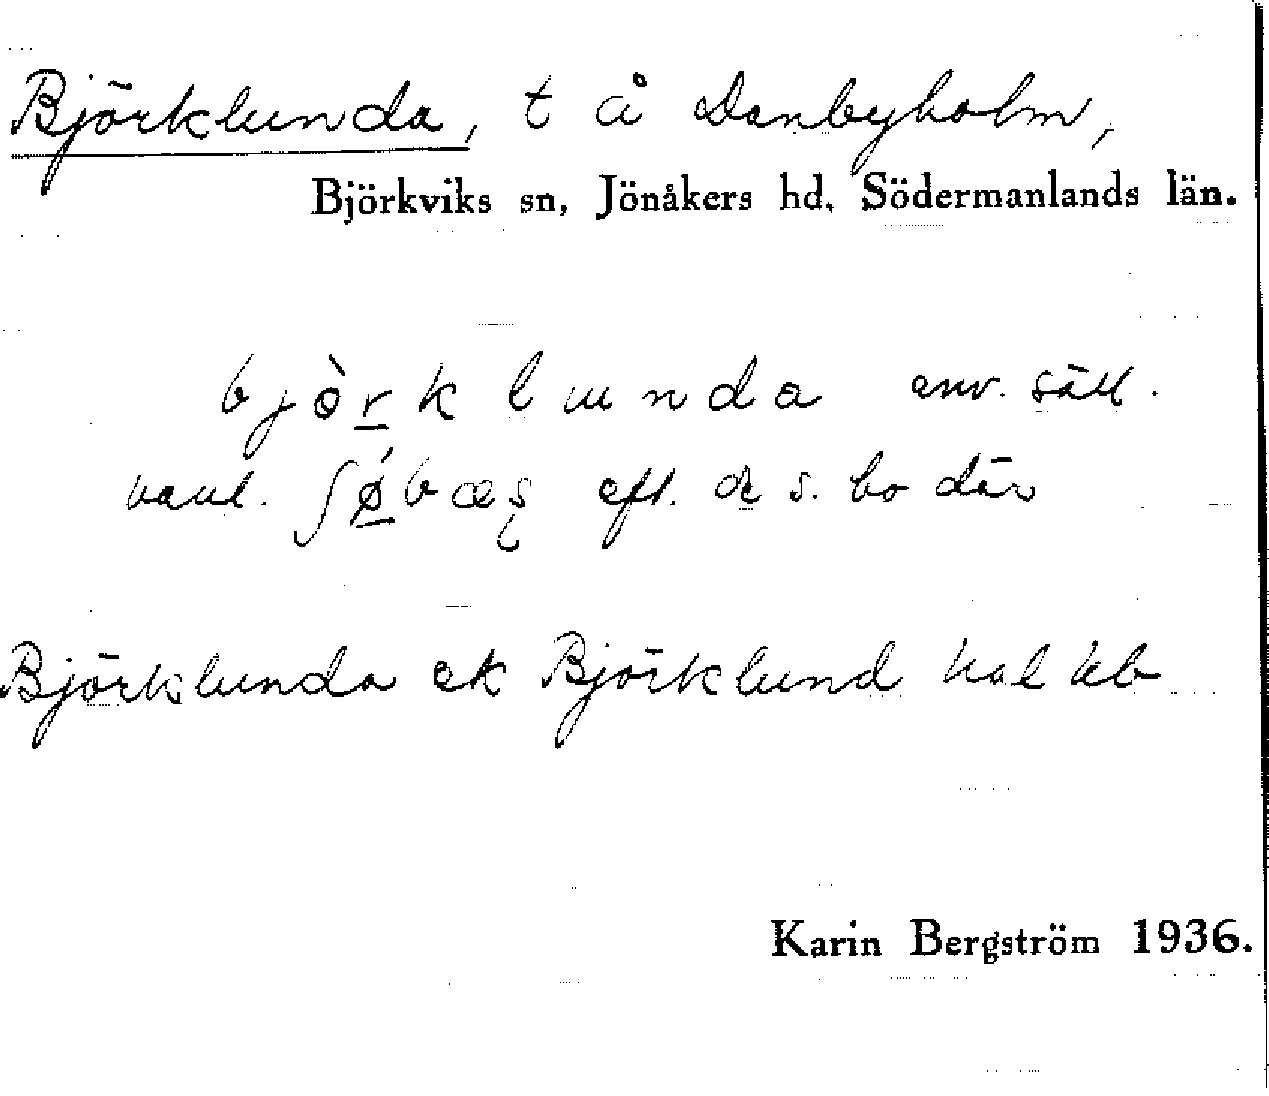 Björklunda, t å Danbyholm,
Björkviks sn, Jönåkers hd, Södermanlands län.
bjòrk lunda anv. säll.
vanl. ʃǿbæʂ eft. de s. bo där
Björklunda ek Björklund hal kb
Karin Bergström 1936.